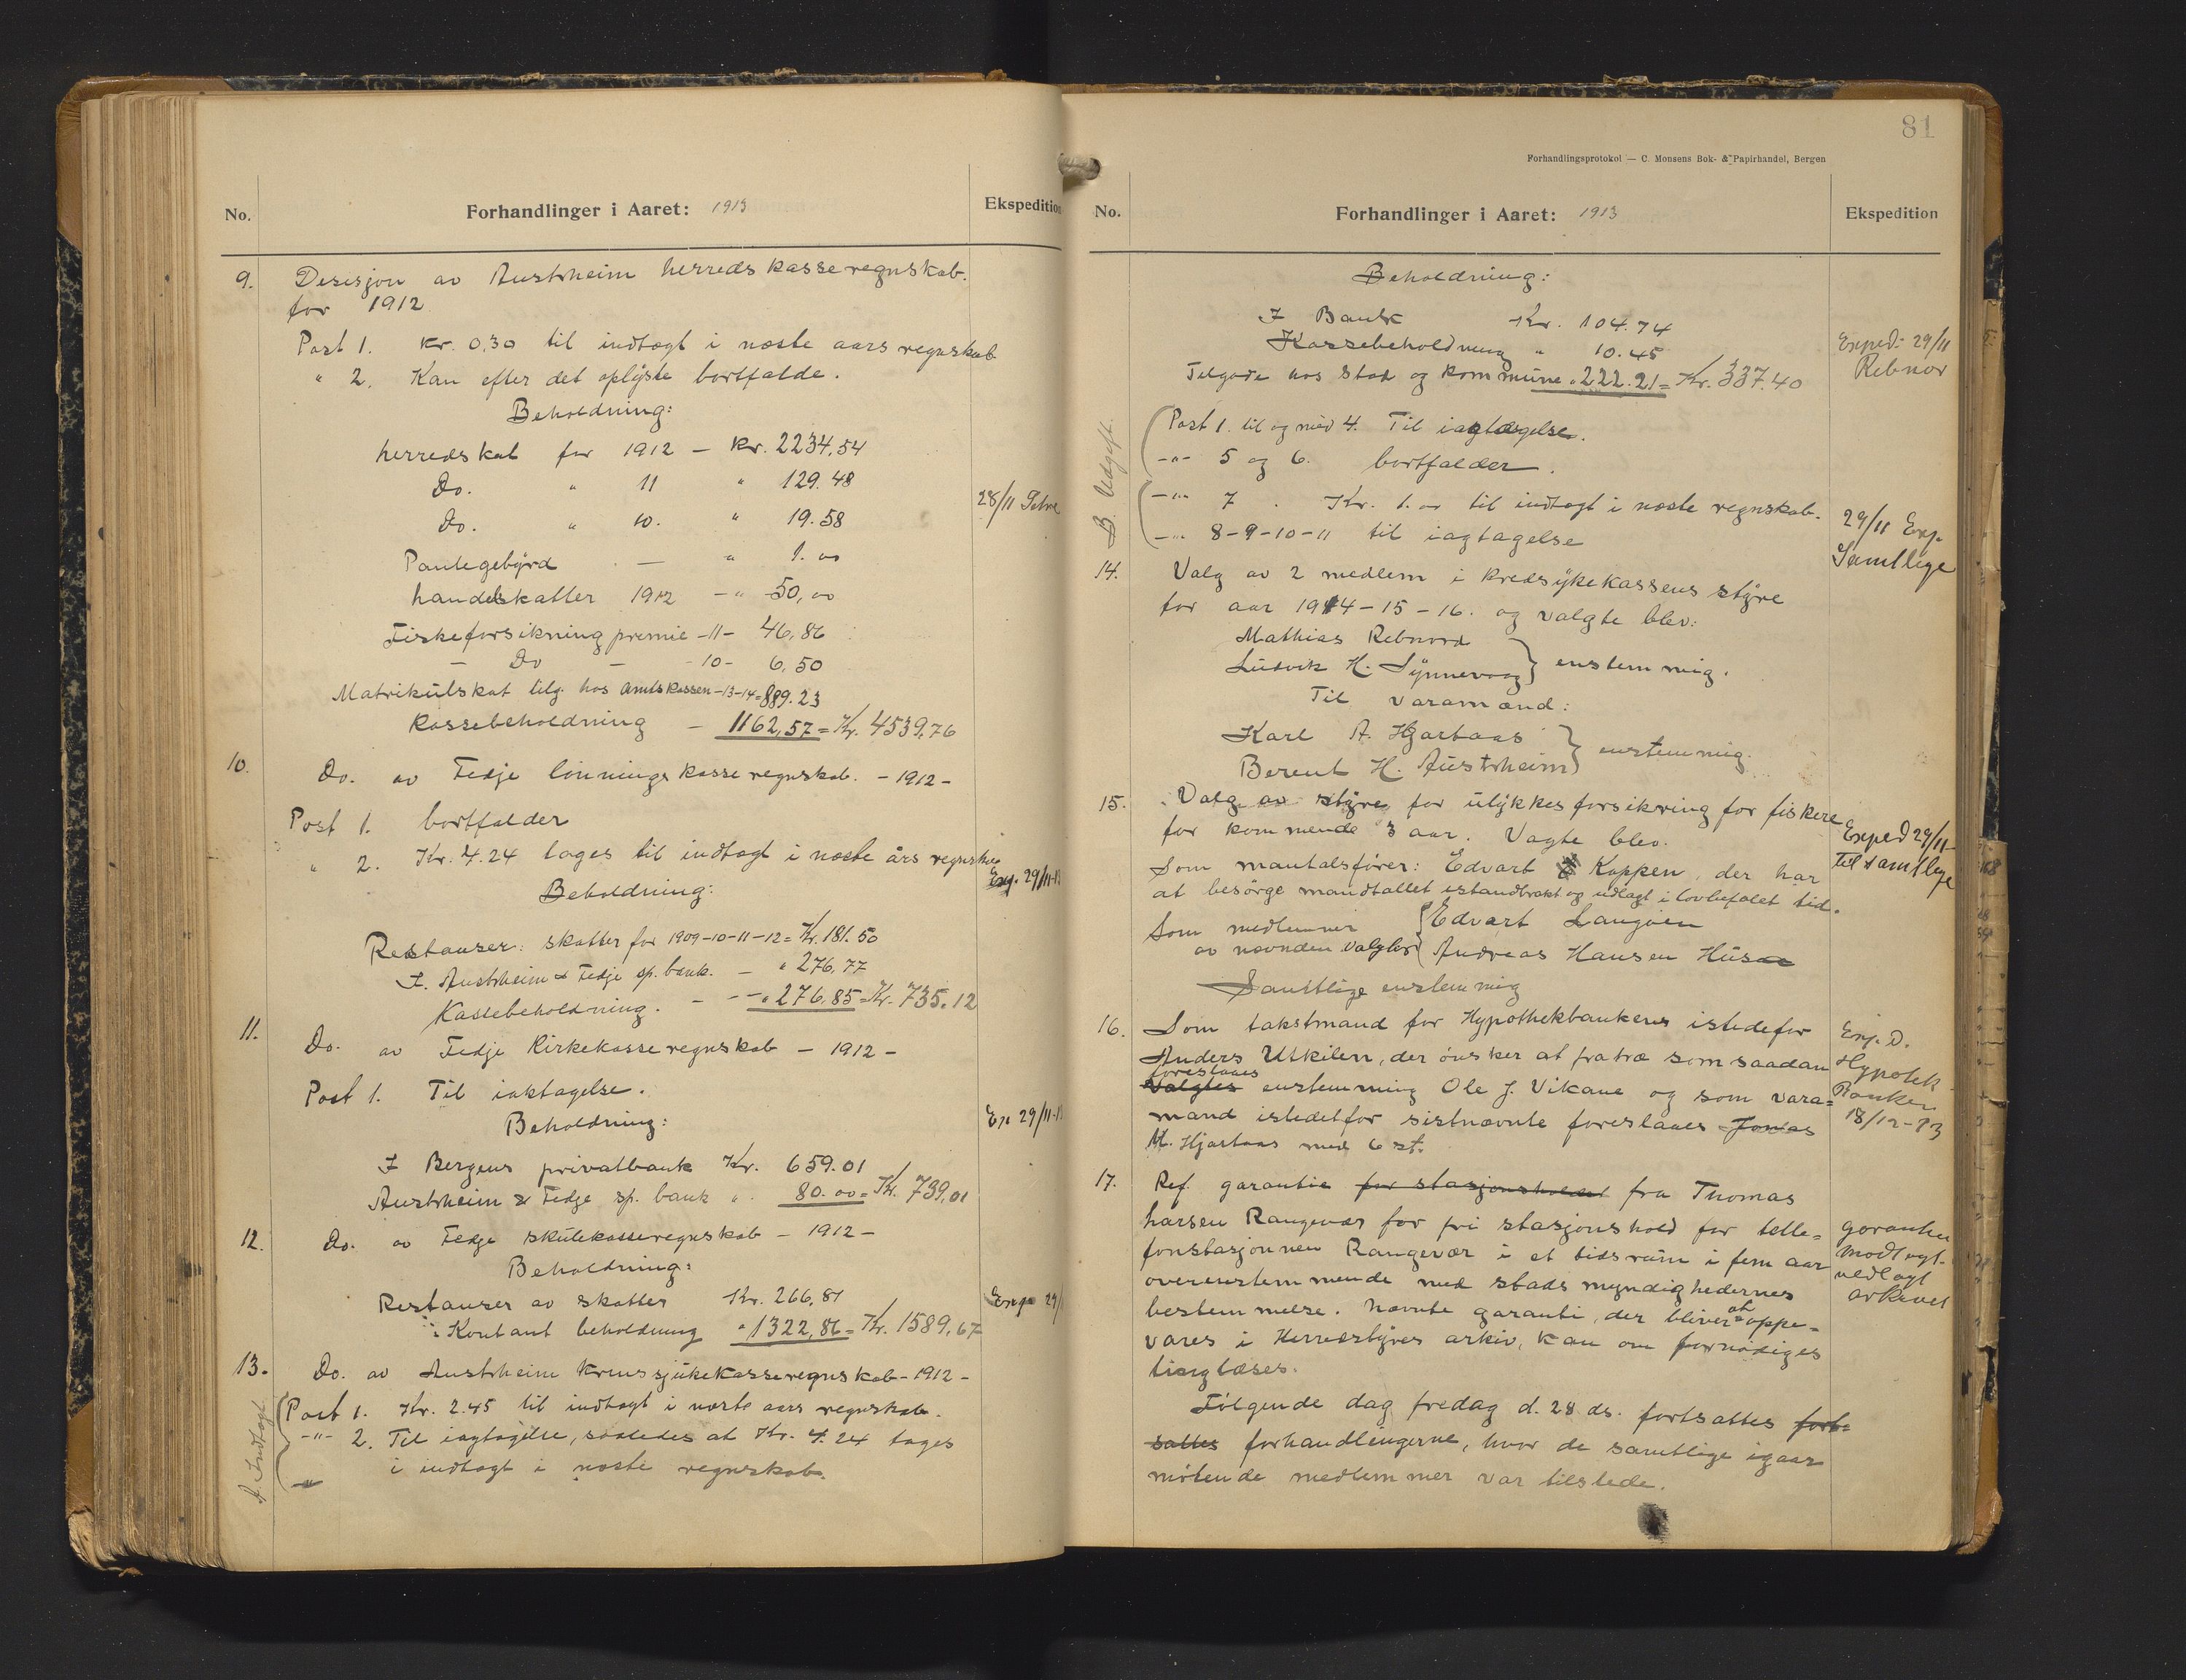 No.
Forhandlinger i Aaret: 1913
Ekspedition
9. Desisjon av Austrheim herredskasseregnskab.
for 1912
Post 1. Kr. 0.30 til indtægt i næste aars regnskab
" 2. Kan efter det oplyste bortfalde.
Beholdning:
herredskat for 1912 — Kr. 2234,54
Do. " 11 " 129.48
Do. " 10. " 19.58
28/11
Pantegebyrd — " 1.00
handelskatter 1912 — " 50,00
Fiskeforsikning premie -11- 46,86
— Do — -10- 6,50
Matrikulskat tilg. hos amtskassen -13-14= 889.23
Kassebeholdning — 1162,57 = Kr. 4539,76
10. Do. av Fedje lønningskasseregnskab. - 1912 -
Post 1. bortfalder
" 2. Kr. 4.24 tages til indtægt i næste års regnskab
Exp. 29/11-13
Beholdning:
Restanser: skatter for 1909-10-11-12= Kr. 181.50
I. Austrheim & Fedje sp. bank. — " 276,77
Kassebeholdning. — — " 276,85 = Kr. 735.12
11. Do. av Fedje Kirkekasseregnskab - 1912 -
Post 1. Til iaktagelse.
Beholdning:
Ex 29/11-13
I Bergens privatbank Kr. 659.01
Austrheim & Fedje sp. bank ". 80.00 = Kr. 739,01
12. Do. av Fedje skulekasseregnskab - 1912 -
Beholdning:
Restanser av skatter Kr. 266,81
Exp 29/
Kontant beholdning " 1322,86 = Kr. 1589,67
13. Do. av Austrheim kredssjukekasseregnskab - 1912 -
A. Indtægt
Post 1. Kr. 2.45 til indtægt i næste aars regnskab.
-"- 2. Til iagtagelse, saaledes at Kr. 4.24 tages
-"-
i indtægt i næste regnskab.
81
Forhandlingsprotokol — C. Monsens Bok- & Papirhandel, Bergen
No.
Forhandlinger i Aaret: 1913
Ekspedition
Beholdning:
I Bank Kr. 104.74
Kassebeholdning " 10.45
Tilgode hos stat og kommune " 222.21 = Kr. 337.40
Exped. 29/11
Rebnor
B. Udgift.
Post 1. til og med 4. Til iagtagelse.
-"- 5 og 6. bortfalder.
-"- 7. Kr. 1.00 til indtægt i næste regnskab.
-"- 8-9-10-11 til iagtagelse
29/11 Exp.
Samtlige
14. Valg av 2 medlem i kredsykekassens styre
for aar 1914-15-16. og valgte blev:
Mathias Rebnord
Ludvik H. Synnevaag } enstemmig.
Til varamænd:
Karl A. Hjartaas
Berent H. Austrheim } enstemmig.
15. Valg av styre for ulykkesforsikring for fiskere
for kommende 3 aar. Vagte blev.
Exped 29/11
til samtlige
Som mantalsfører: Edvart Koppen, der har
at besørge mandtallet istandbrakt og udlagt i lovbefalet tid.
Som medlemmer { Edvart Langøen
av nævnden valgtes { Andreas Hansen Husa
Samtlige enstemmig
16. Som takstmand for Hypothekbanken istedefor
Anders Utkilen, der ønsker at fratræ som saadan
foreslaaes
valgtes enstemmig Ole J. Vikane og som vara=
mand istedetfor sistnævnte foreslaaes Jonas
M. Hjartaas med 6 st.
Exp. D.
Hypotek
Banken
18/12-13
17. Ref. garantie for stasjonsholdet fra Thomas
harsen Rangevær for fri stasjonshold for telle=
fonstasjonnen Rangevær i et tidsrum i fem aar
overensstemmende med stads myndighedernes
bestemmelse. nævnte garanti, der bliver at oppe-
vares i Herredstyres arkiv, kan om fornødiges
tinglæses.
garantien
modtagt
nedlagt
arkivet
Følgende dag fredag d. 28 ds. fortsattes fort-
sattes forhandlingerne, hvor de samtlige igaar
møtende medlemmer var tilstede.